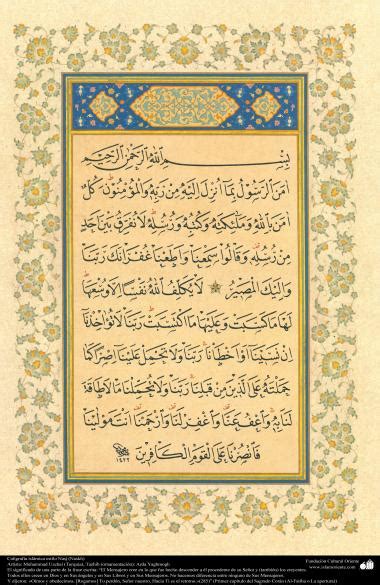 بِسْمِ اللهِ الرَّحْمٰنِ الرَّحِيْمِ
اٰمَنَ الرَّسُوْلُ بِمَا اُنْزِلَ اِلَيْهِ مِنْ رَبِّهِ وَالْمُؤْمِنُوْنَ كُلٌّ
اٰمَنَ بِاللهِ وَمَلٰئِكَتِهِ وَكُتُبِهِ وَرُسُلِهِ لَا نُفَرِّقُ بَيْنَ اَحَدٍ
مِنْ رُسُلِهِ وَقَالُوا سَمِعْنَا وَاَطَعْنَا غُفْرَانَكَ رَبَّنَا
وَاِلَيْكَ الْمَصِيْرُ لَا يُكَلِّفُ اللهُ نَفْسًا اِلَّا وُسْعَهَا
لَهَا مَا كَسَبَتْ وَعَلَيْهَا مَا اكْتَسَبَتْ رَبَّنَا لَا تُؤَاخِذْنَا
اِنْ نَسِيْنَا اَوْ اَخْطَاْنَا رَبَّنَا وَلَا تَحْمِلْ عَلَيْنَا اِصْرًا كَمَا
حَمَلْتَهُ عَلَى الَّذِيْنَ مِنْ قَبْلِنَا رَبَّنَا وَلَا تُحَمِّلْنَا مَا لَا طَاقَةَ
لَنَا بِهِ وَاعْفُ عَنَّا وَاغْفِرْ لَنَا وَارْحَمْنَا اَنْتَ مَوْلٰينَا
فَانْصُرْنَا عَلَى الْقَوْمِ الْكَافِرِيْنَ
١٤٢٢
Caligrafía islámica estilo Nasj (Naskh)
Artista: Muhammad Uzchai (Turquía), Tazhib (ornamentación): Arda
Fundación Cultural Oriente
www.islamoriente.com
El significado de una parte de la frase escrita: "El Mensajero cree en lo que fue hecho descender a él procedente de su Señor y (también) los creyentes.
Todos ellos creen en Dios y en Sus ángeles y en Sus Libros y en Sus Mensajeros. No hacemos diferencia entre ninguno de Sus Mensajeros.
Y dijeron: «Oímos y obedecemos. [Rogamos] Tu perdón, Señor nuestro, Hacia Ti es el retorno.»(285)" (Primer capítulo del Sagrado Corán (Al-Fatiha o La apertura)